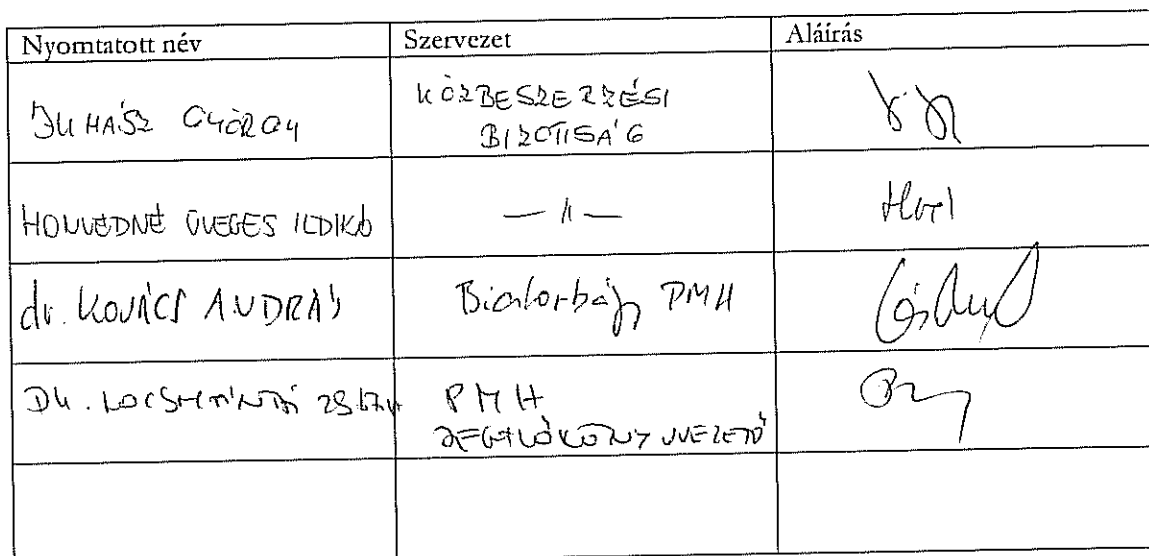 Nyomtatott név Szervezet Aláírás
JUHÁSZ GYÖRGY KÖZBESZERZÉSI
BIZOTTSÁG
HONVÉDNÉ ÜVEGES ILDIKÓ — 11 —
dr. KOVÁCS ANDRÁS Biatorbágy PMH
DR. PMH
JEGYZŐKÖNYVVEZETŐ